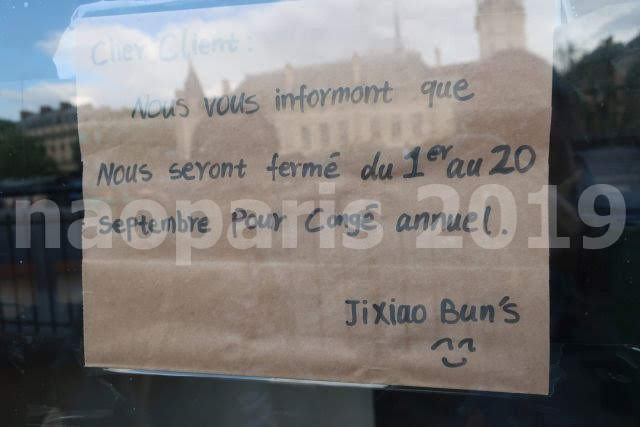 Cher Client :
Nous vous informont que
Nous seront fermé du 1er au 20
septembre Pour Congé annuel.
JiXiao Bun's
naoparis 2019